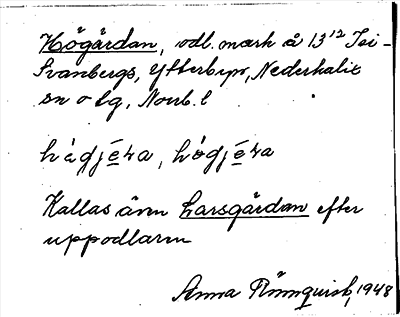 Högårdan, odl. mark å 13¹² Jei-
Svanbergs, Ytterbyn, Nederkalix
sn o lg, Norrb. l
hågjēra, hógjēra
Kallas även Larsgårdan efter
uppodlaren
Anna Rönnquist, 1948